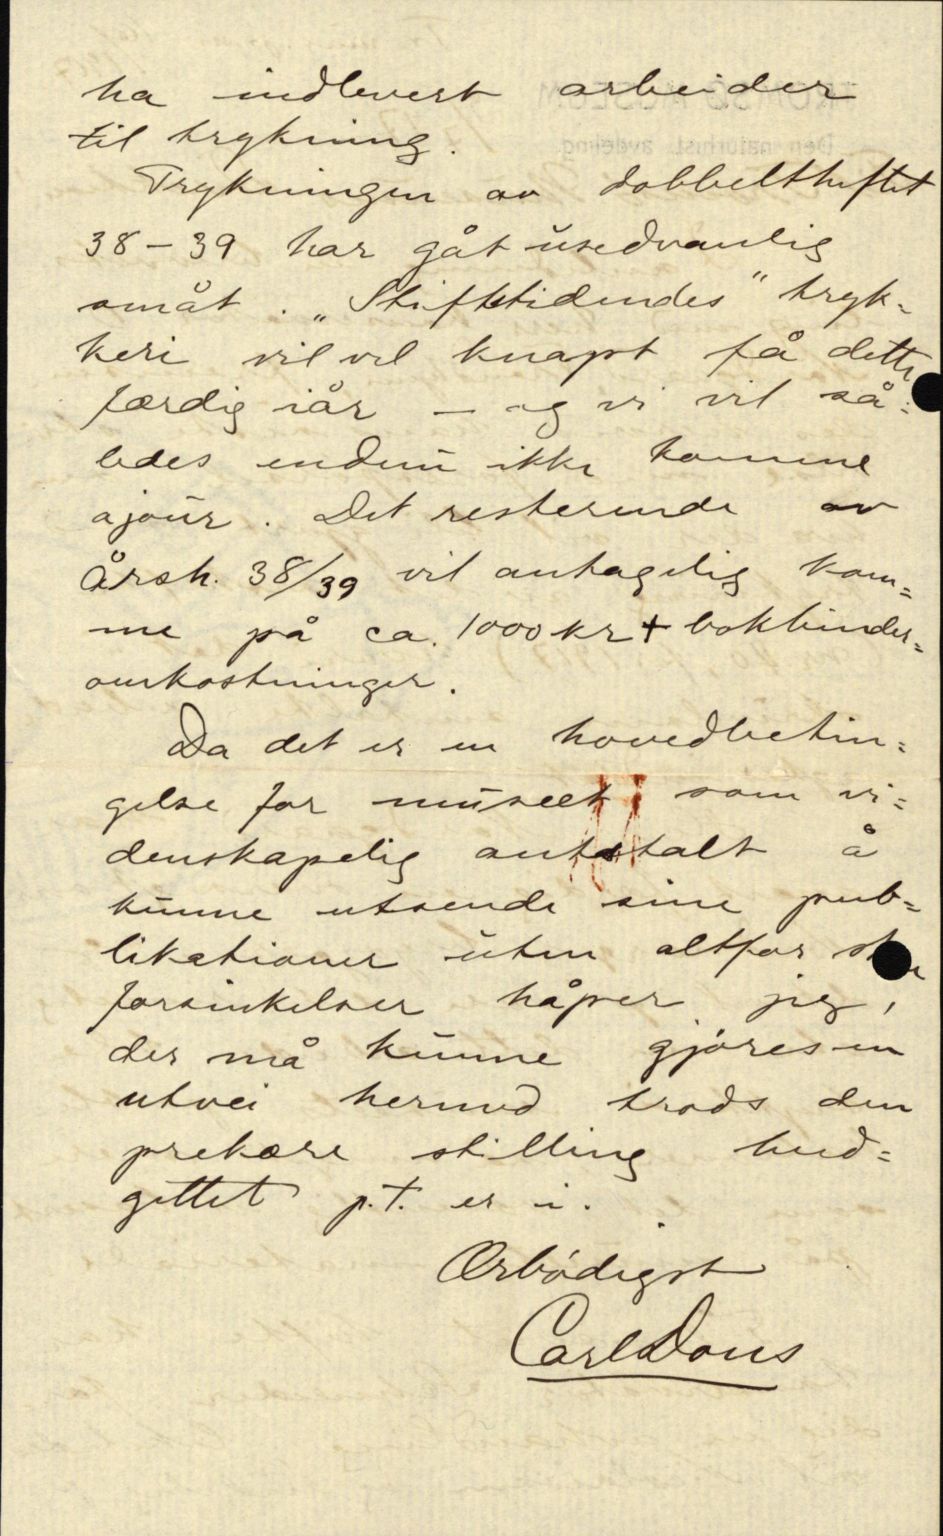 ha indlevert arbeider
til trykning.
Trykningen av dobbelthæftet
38-39 har gåt usedvanlig
småt. „Stiftstidendes" tryk=
keri vil vel knapt få dette
færdig iår — og vi vil så=
ledes endnu ikke komme
ajour. Det resterende av
Årsh. 38/39 vil antagelig kom=
me på ca. 1000 kr + bokbinder=
omkostninger.
Da det er en hovedbetin=
gelse for museet som vi=
denskapelig anstalt å
kunne utsende sine pub=
likationer uten altfor store
forsinkelser håper jeg,
der må kunne gjøres en
utvei hermed trods den
prekære stilling bud=
gettet p.t. er i.
Ærbødigst
Carl Dons